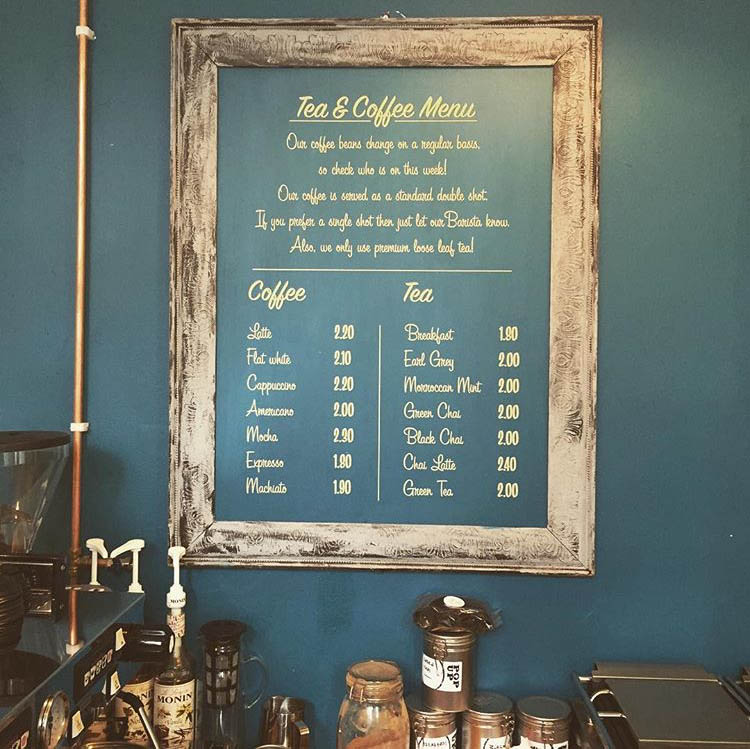 Tea & Coffee Menu
Our coffee beans change on a regular basis,
so check who is on this week!
Our coffee is served as a standard double shot.
If you prefer a single shot then just let our Barista know.
Also, we only use premium loose leaf tea!
Coffee
Latte 2.20
Flat white 2.10
Cappuccino 2.20
Americano 2.00
Mocha 2.30
Expresso 1.80
Machiato 1.90
Tea
Breakfast 1.80
Earl Grey 2.00
Morroccan Mint 2.00
Green Chai 2.00
Black Chai 2.00
Chai Latte 2.40
Green Tea 2.00
MONIN
POP UP